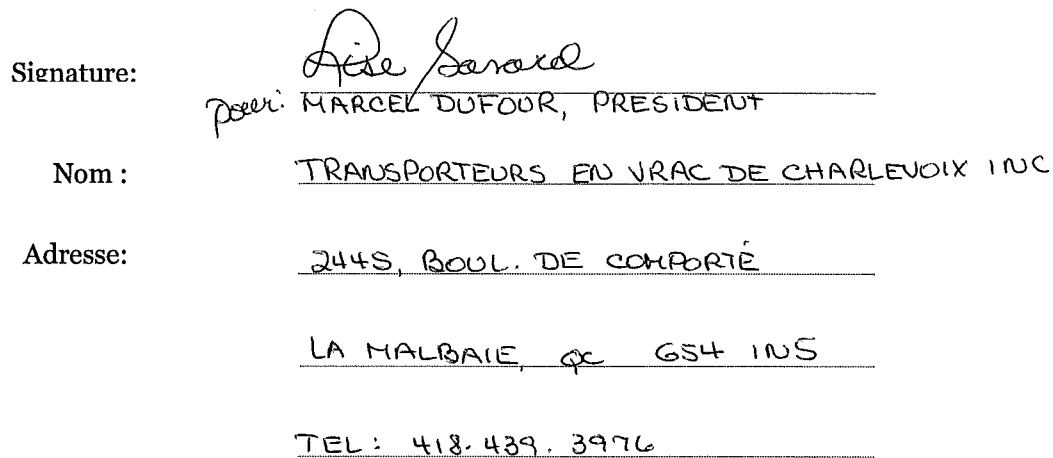 Signature: Lise Savard
pour: MARCEL DUFOUR, PRESIDENT
Nom : TRANSPORTEURS EN VRAC DE CHARLEVOIX INC
Adresse: 2445, BOUL. DE COMPORTÉ
LA MALBAIE, QC G54 1N5
TEL: 418.439.3976